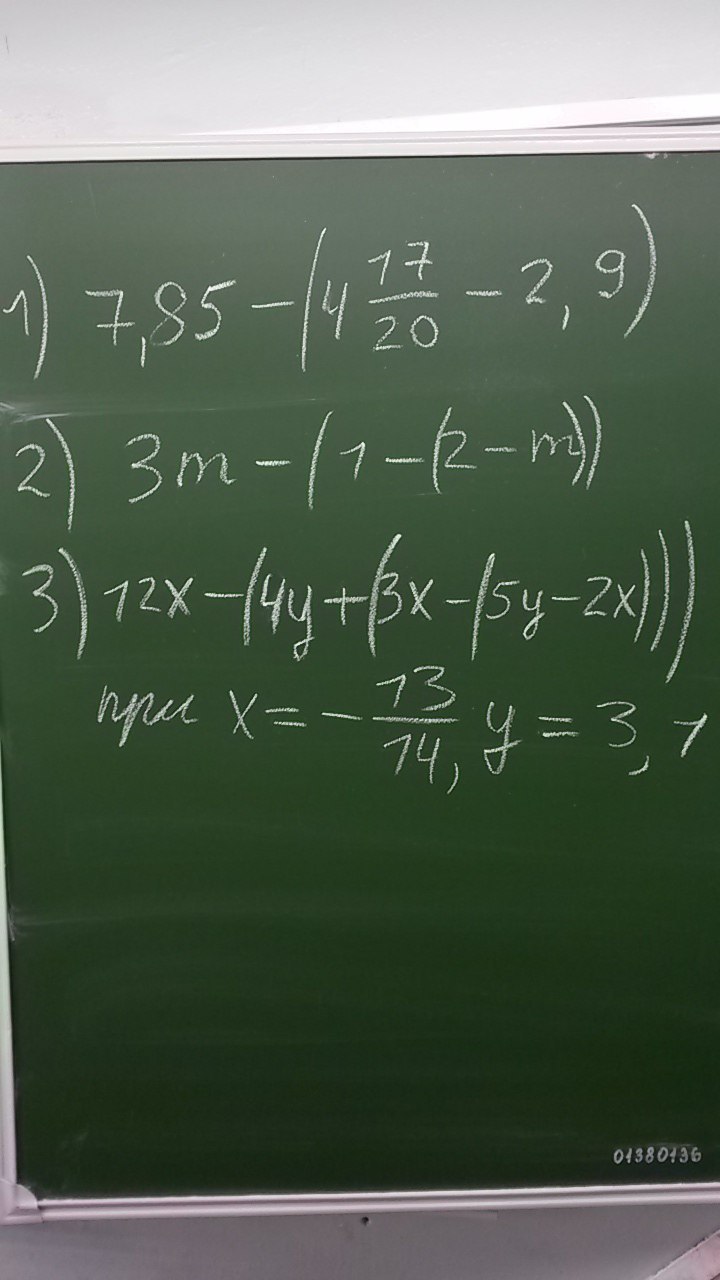 1) 7,85 – (4 17/20 – 2,9)
2) 3m – (1 – (2 – m))
3) 12x – (4y + (3x – (5y – 2x)))
при x = – 13/14, y = 3,1
01380136